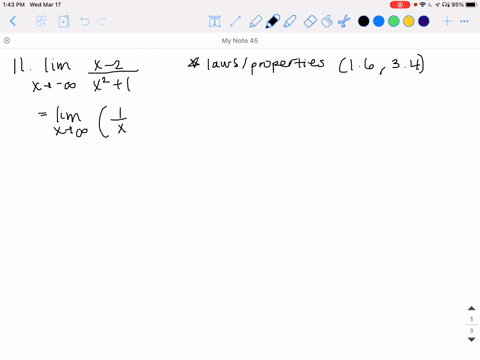 1:43 PM Wed Mar 17
95%
My Note 45
11. lim x→-∞ x-2 / x²+1 * laws/properties (1.6, 3.4)
= lim x→∞ ( 1/x
1
3